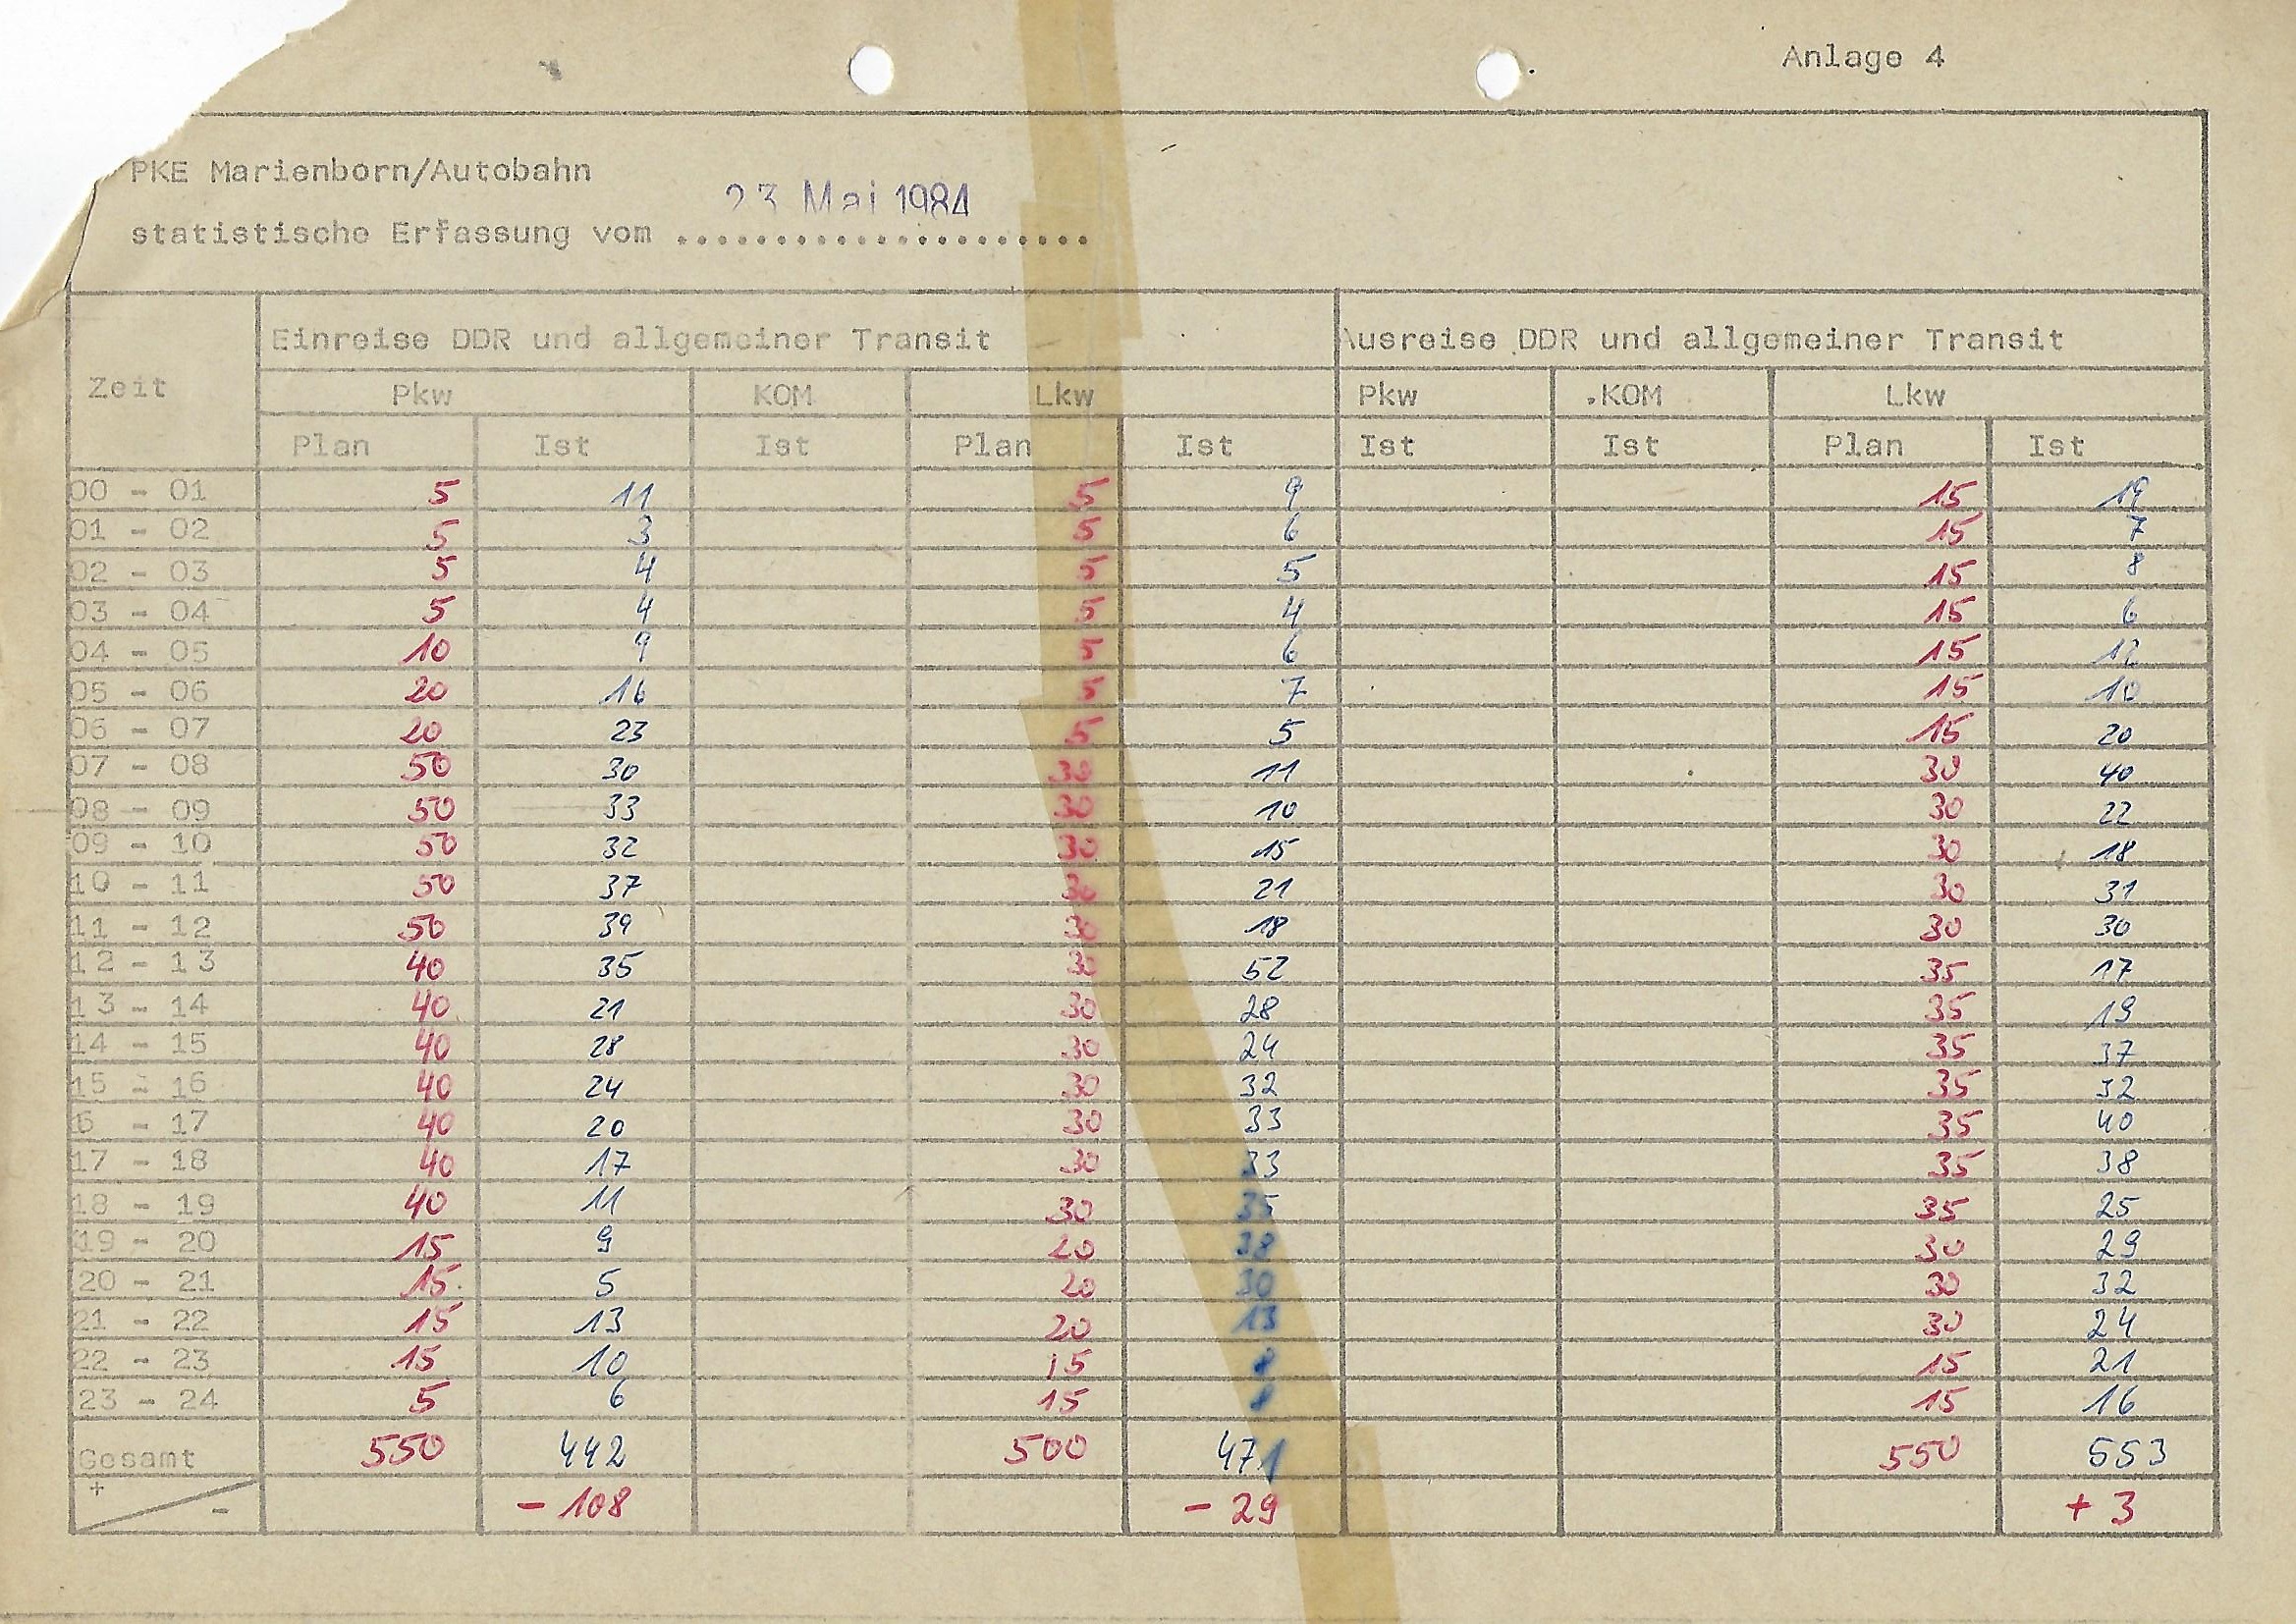 Anlage 4
PKE Marienborn/Autobahn
23 Mai 1984
statistische Erfassung vom .....................
Einreise DDR und allgemeiner Transit Ausreise DDR und allgemeiner Transit
Zeit Pkw KOM Lkw Pkw KOM Lkw
Plan Ist Ist Plan Ist Ist Ist Plan Ist
00 - 01 5 11 5 9 15 19
01 - 02 5 3 5 6 15 7
02 - 03 5 4 5 5 15 8
03 - 04 5 4 5 4 15 6
04 - 05 10 9 5 6 15 12
05 - 06 20 16 5 7 15 10
06 - 07 20 23 5 5 15 20
07 - 08 50 30 30 11 30 40
08 - 09 50 33 30 10 30 22
09 - 10 50 32 30 15 30 18
10 - 11 50 37 30 21 30 31
11 - 12 50 39 30 18 30 30
12 - 13 40 35 30 52 35 17
13 - 14 40 21 30 28 35 19
14 - 15 40 28 30 24 35 37
15 - 16 40 24 30 32 35 32
6 - 17 40 20 30 33 35 40
17 - 18 40 17 30 33 35 38
18 - 19 40 11 30 35 35 25
19 - 20 15 9 20 38 30 29
20 - 21 15 5 20 30 30 32
21 - 22 15 13 20 13 30 24
22 - 23 15 10 15 8 15 21
23 - 24 5 6 15 8 15 16
Gesamt 550 442 500 471 550 553
+ - - 108 - 29 + 3